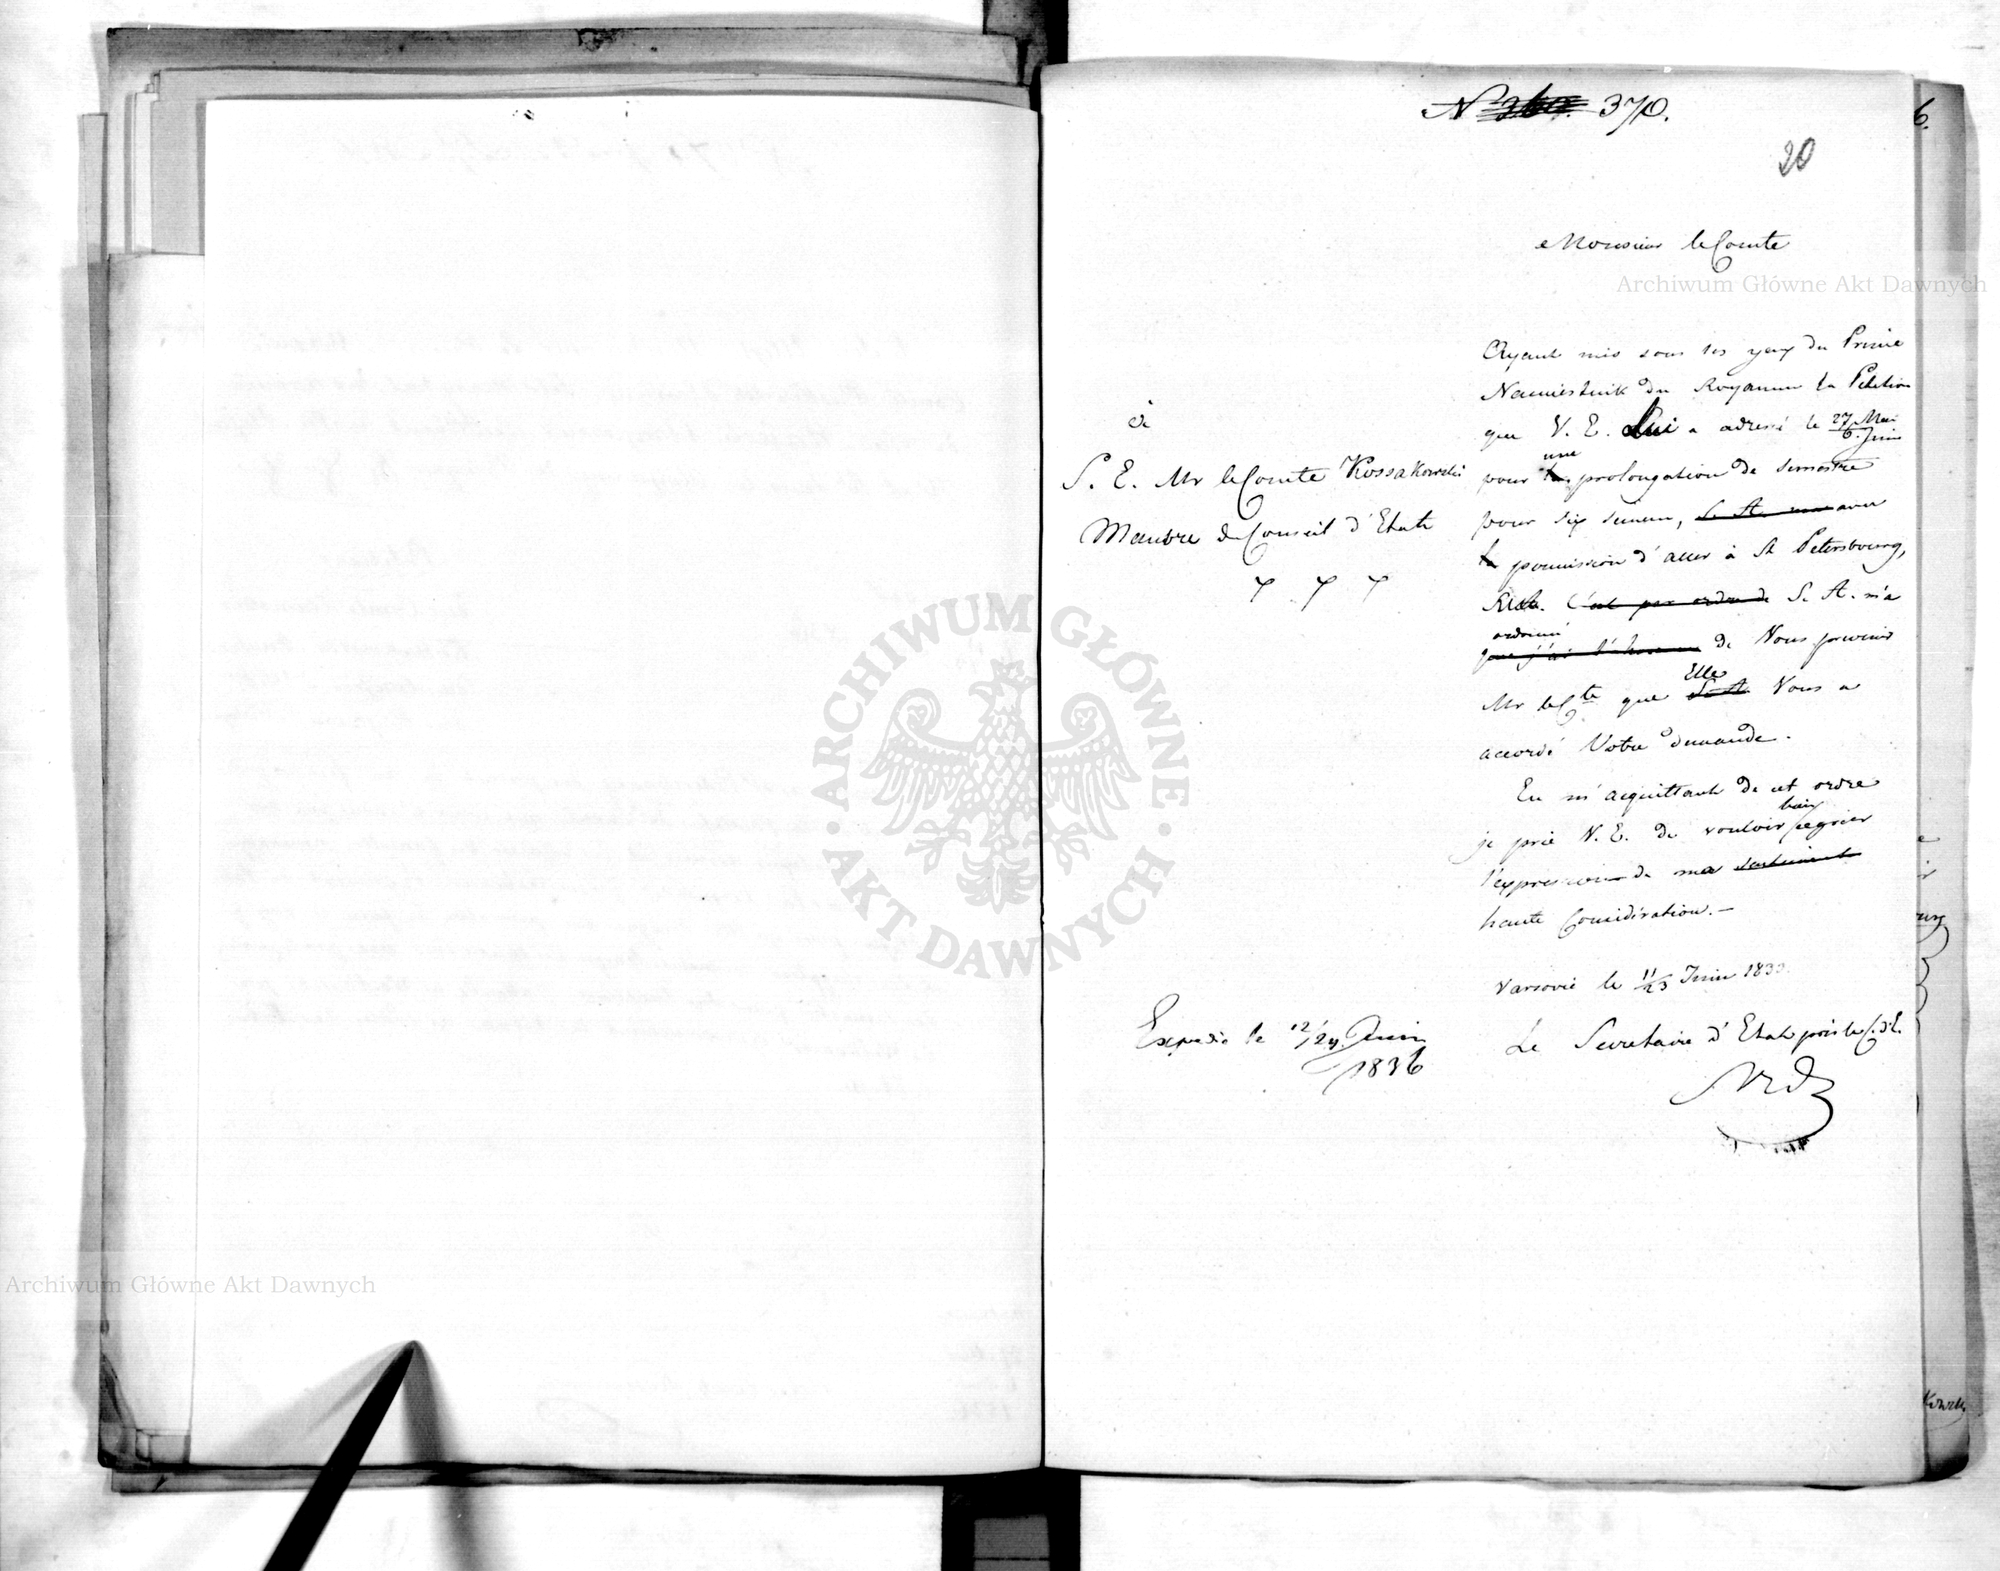 N ~~360.~~ 370.
20
Monsieur le Comte
Ayant mis sous les yeux du Prince
Namiestnik du Royaume la Petition
que V. E. Lui a adressé le 27 Mai
6. Juin
une
pour ~~la~~ prolongation de semestre
pour six semain, ~~S. A. m'a~~ avec
~~la~~ permission d'aller à St Petersbourg,
~~C'est par ordre de~~ S. A. m'a
ordonné
~~que j'ai l'honneur~~ de Vous prevenir
Elle
Mr le Cte que ~~S. A.~~ Vous a
accordé Votre demande.
En m'acquittant de cet ordre
bien
je prie V. E. de vouloir agréer
l'expression de ma ~~sentiments~~
haute Considération. —
Varsovie le 11/23 Juin 183
Le Secretaire d'Etat près le C. d'E.
à
S. E. Mr le Comte Kossakowski
Membre du Conseil d'Etat
Expedié le 12/24 Juin
1836
6.
Archiwum Główne Akt Dawnych
ARCHIWUM GŁÓWNE
AKT DAWNYCH
Archiwum Główne Akt Dawnych